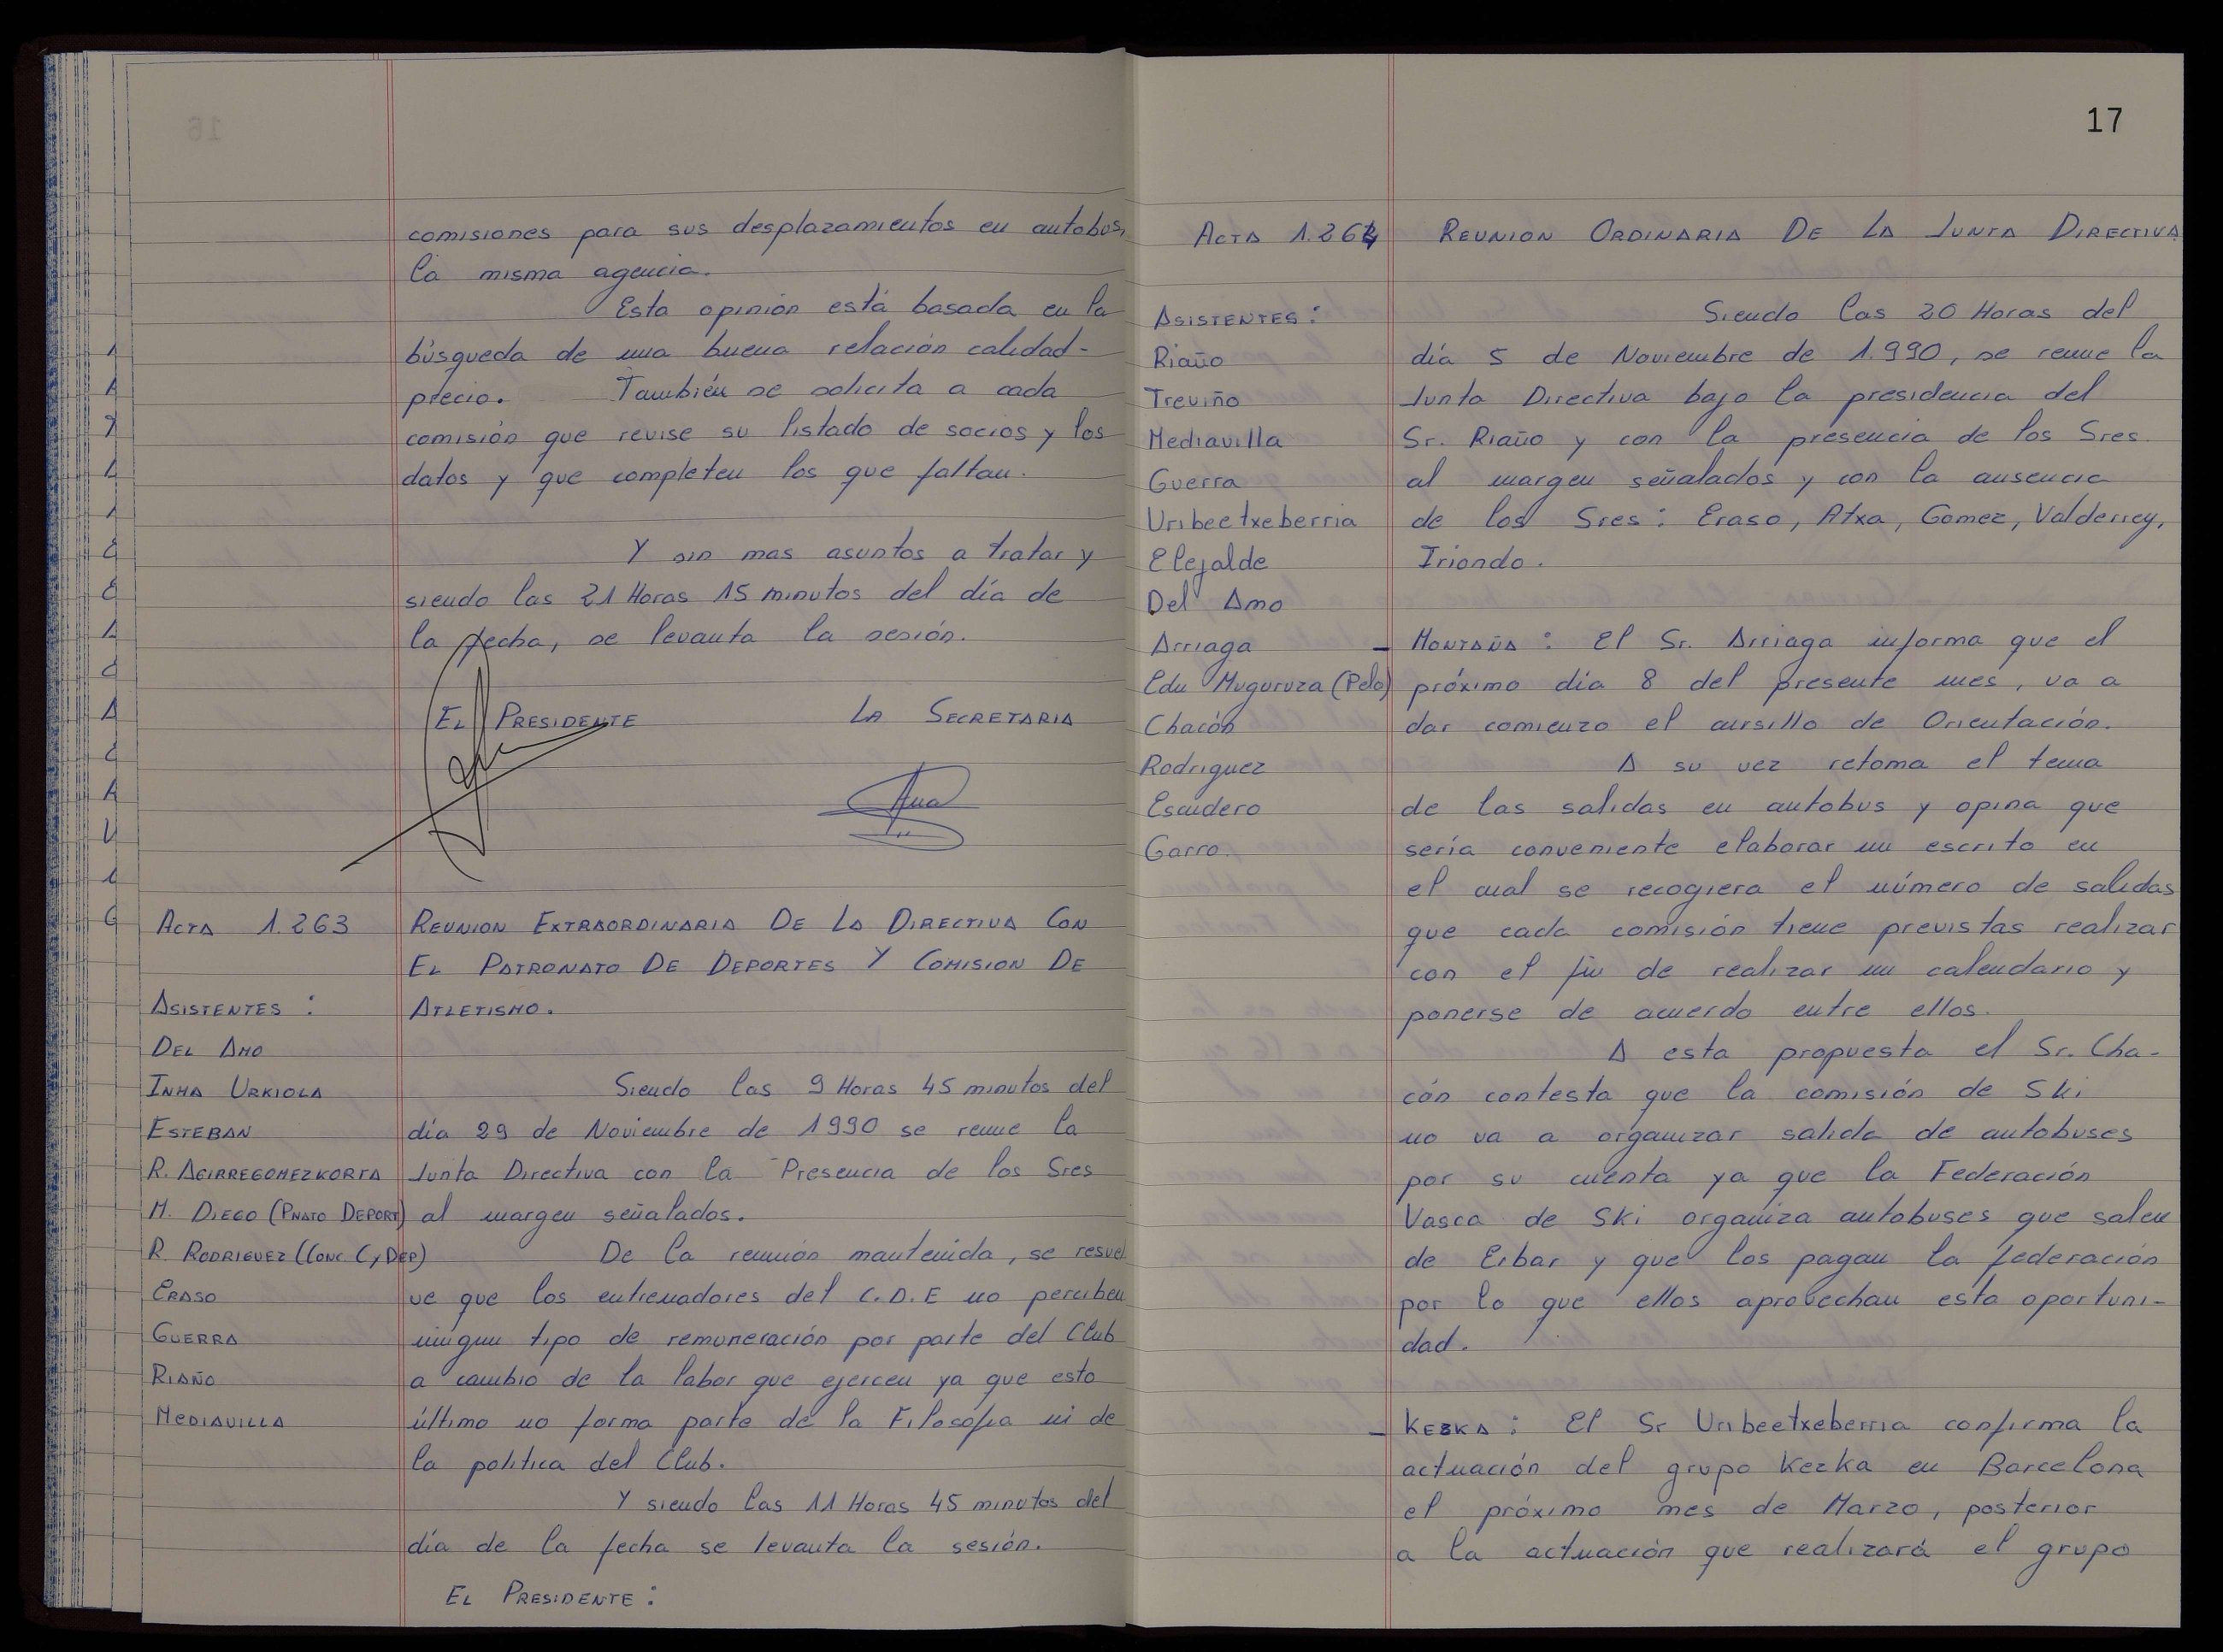 comisiones para sus desplazamientos en autobus,
la misma agencia.
Esta opinión está basada en la
búsqueda de una buena relación calidad-
precio. También se solicita a cada
comisión que revise su listado de socios y los
datos y que completen los que faltan.
Y sin mas asuntos a tratar y
siendo las 21 Horas 15 minutos del día de
la fecha, se levanta la sesión.
EL PRESIDENTE LA SECRETARIA
Ana
ACTA 1.263 REUNION EXTRAORDINARIA DE LA DIRECTIVA CON
EL PATRONATO DE DEPORTES Y COMISION DE
ATLETISMO.
ASISTENTES :
DEL AMO
INMA URKIOLA
ESTEBAN
R. AGIRREGOMEZKORTA
M. DIEGO (PNATO DEPORT)
R. RODRIGUEZ (CONC. C y DEP)
ERASO
GUERRA
RIAÑO
MEDIAVILLA
Siendo las 9 Horas 45 minutos del
día 29 de Noviembre de 1990 se reune la
Junta Directiva con la Presencia de los Sres
al margen señalados.
De la reunión mantenida, se resuel
ve que los entrenadores del C.D.E no perciben
ningun tipo de remuneración por parte del Club
a cambio de la labor que ejercen ya que esto
último no forma parte de la Filosofia ni de
la politica del Club.
Y siendo las 11 Horas 45 minutos del
día de la fecha se levanta la sesión.
EL PRESIDENTE :
17
ACTA 1.264 REUNION ORDINARIA DE LA JUNTA DIRECTIVA
ASISTENTES :
Riaño
Treviño
Mediavilla
Guerra
Uribeetxeberria
Elejalde
Del Amo
Arriaga
Edu Muguruza (Pelo)
Chacón
Rodriguez
Escudero
Garro.
Siendo las 20 Horas del
día 5 de Noviembre de 1.990, se reune la
Junta Directiva bajo la presidencia del
Sr. Riaño y con la presencia de los Sres.
al margen señalados y con la ausencia
de los Sres : Eraso, Atxa, Gomez, Valderrey,
Iriondo.
- MONTAÑA : El Sr. Arriaga informa que el
próximo día 8 del presente mes, va a
dar comienzo el cursillo de Orientación.
A su vez retoma el tema
de las salidas en autobus y opina que
sería conveniente elaborar un escrito en
el cual se recogiera el número de salidas
que cada comisión tiene previstas realizar
con el fin de realizar un calendario y
ponerse de acuerdo entre ellos.
A esta propuesta el Sr. Cha-
cón contesta que la comisión de Ski
no va a organizar salida de autobuses
por su cuenta ya que la Federación
Vasca de Ski organiza autobuses que salen
de Eibar y que los pagan la federación
por lo que ellos aprovechan esta oportuni-
dad.
- KEZKA : El Sr Uribeetxeberria confirma la
actuación del grupo Kezka en Barcelona
el próximo mes de Marzo, posterior
a la actuación que realizará el grupo